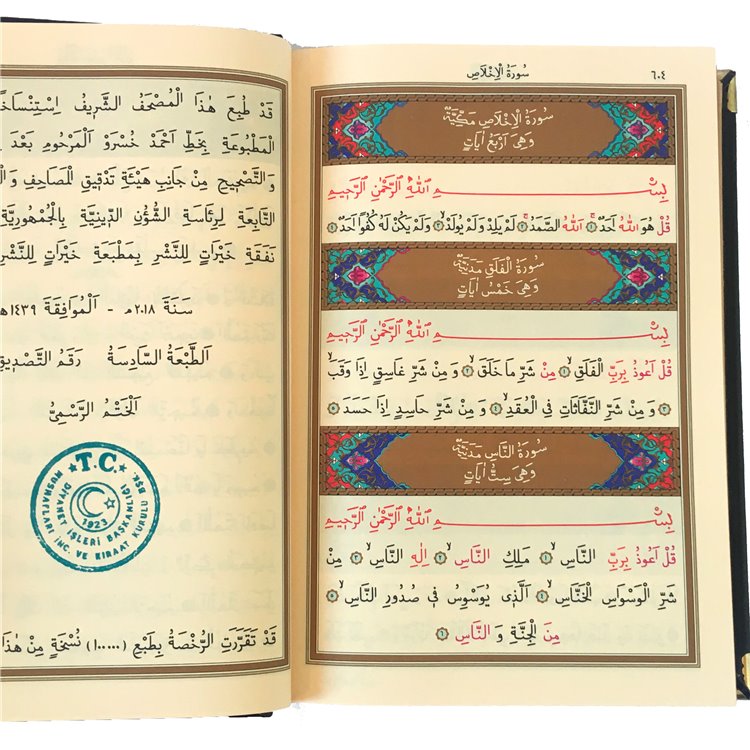 سُورَةُ الْاِخْلَاصِ ٦٠٤
سُورَةُ الْاِخْلَاصِ مَكِّيَّةٌ
وَهِىَ اَرْبَعُ اٰيَاتٍ
بِسْمِ اللّٰهِ الرَّحْمٰنِ الرَّحِيمِ
قُلْ هُوَ اللّٰهُ اَحَدٌۚ ﴿١﴾ اَللّٰهُ الصَّمَدُۚ ﴿٢﴾ لَمْ يَلِدْ وَلَمْ يُولَدْۙ ﴿٣﴾ وَلَمْ يَكُنْ لَهُ كُفُوًا اَحَدٌ ﴿٤﴾
سُورَةُ الْفَلَقِ مَدَنِيَّةٌ
وَهِىَ خَمْسُ اٰيَاتٍ
بِسْمِ اللّٰهِ الرَّحْمٰنِ الرَّحِيمِ
قُلْ اَعُوذُ بِرَبِّ الْفَلَقِۙ ﴿١﴾ مِنْ شَرِّ مَا خَلَقَۙ ﴿٢﴾ وَمِنْ شَرِّ غَاسِقٍ اِذَا وَقَبَۙ
﴿٣﴾ وَمِنْ شَرِّ النَّفَّاثَاتِ فِى الْعُقَدِۙ ﴿٤﴾ وَمِنْ شَرِّ حَاسِدٍ اِذَا حَسَدَ ﴿٥﴾
سُورَةُ النَّاسِ مَدَنِيَّةٌ
وَهِىَ سِتُّ اٰيَاتٍ
بِسْمِ اللّٰهِ الرَّحْمٰنِ الرَّحِيمِ
قُلْ اَعُوذُ بِرَبِّ النَّاسِۙ ﴿١﴾ مَلِكِ النَّاسِۙ ﴿٢﴾ اِلٰهِ النَّاسِۙ ﴿٣﴾ مِنْ
شَرِّ الْوَسْوَاسِ الْخَنَّاسِۙ ﴿٤﴾ اَلَّذِى يُوَسْوِسُ فِى صُدُورِ النَّاسِۙ ﴿٥﴾
مِنَ الْجِنَّةِ وَالنَّاسِ ﴿٦﴾
قَدْ طُبِعَ هٰذَا الْمُصْحَفُ الشَّرِيفُ
الْمَطْبُوعَةِ بِخَطِّ اَحْمَدْ خُسْرَوْ اَلْمَرْحُومِ بَعْدَ
وَالتَّصْحِيحِ مِنْ جَانِبِ هَيْئَةِ تَدْقِيقِ الْمَصَاحِفِ
التَّابِعَةِ لِرِئَاسَةِ الشُّؤُنِ الدِّينِيَّةِ بِالْجُمْهُورِيَّةِ
نَفَقَةِ خَيْرَاتٍ لِلنَّشْرِ بِمَطْبَعَةِ خَيْرَاتٍ لِلنَّشْرِ
سَنَةَ ٢٠١٨م - اَلْمُوَافِقَةَ ١٤٣٩ه
اَلطَّبْعَةُ السَّادِسَةُ رَقْمُ التَّصْدِيقِ
اَلْخَتْمُ الرَّسْمِىُّ
T.C.
DİYANET İŞLERİ BAŞKANLIĞI
MUSHAFLARI İNC. VE KIRAAT KURULU BŞK.
1923
قَدْ تَقَرَّرَتِ الرُّخْصَةُ بِطَبْعِ (١٠٠٠٠٠) نُسْخَةٍ مِنْ هٰذَا